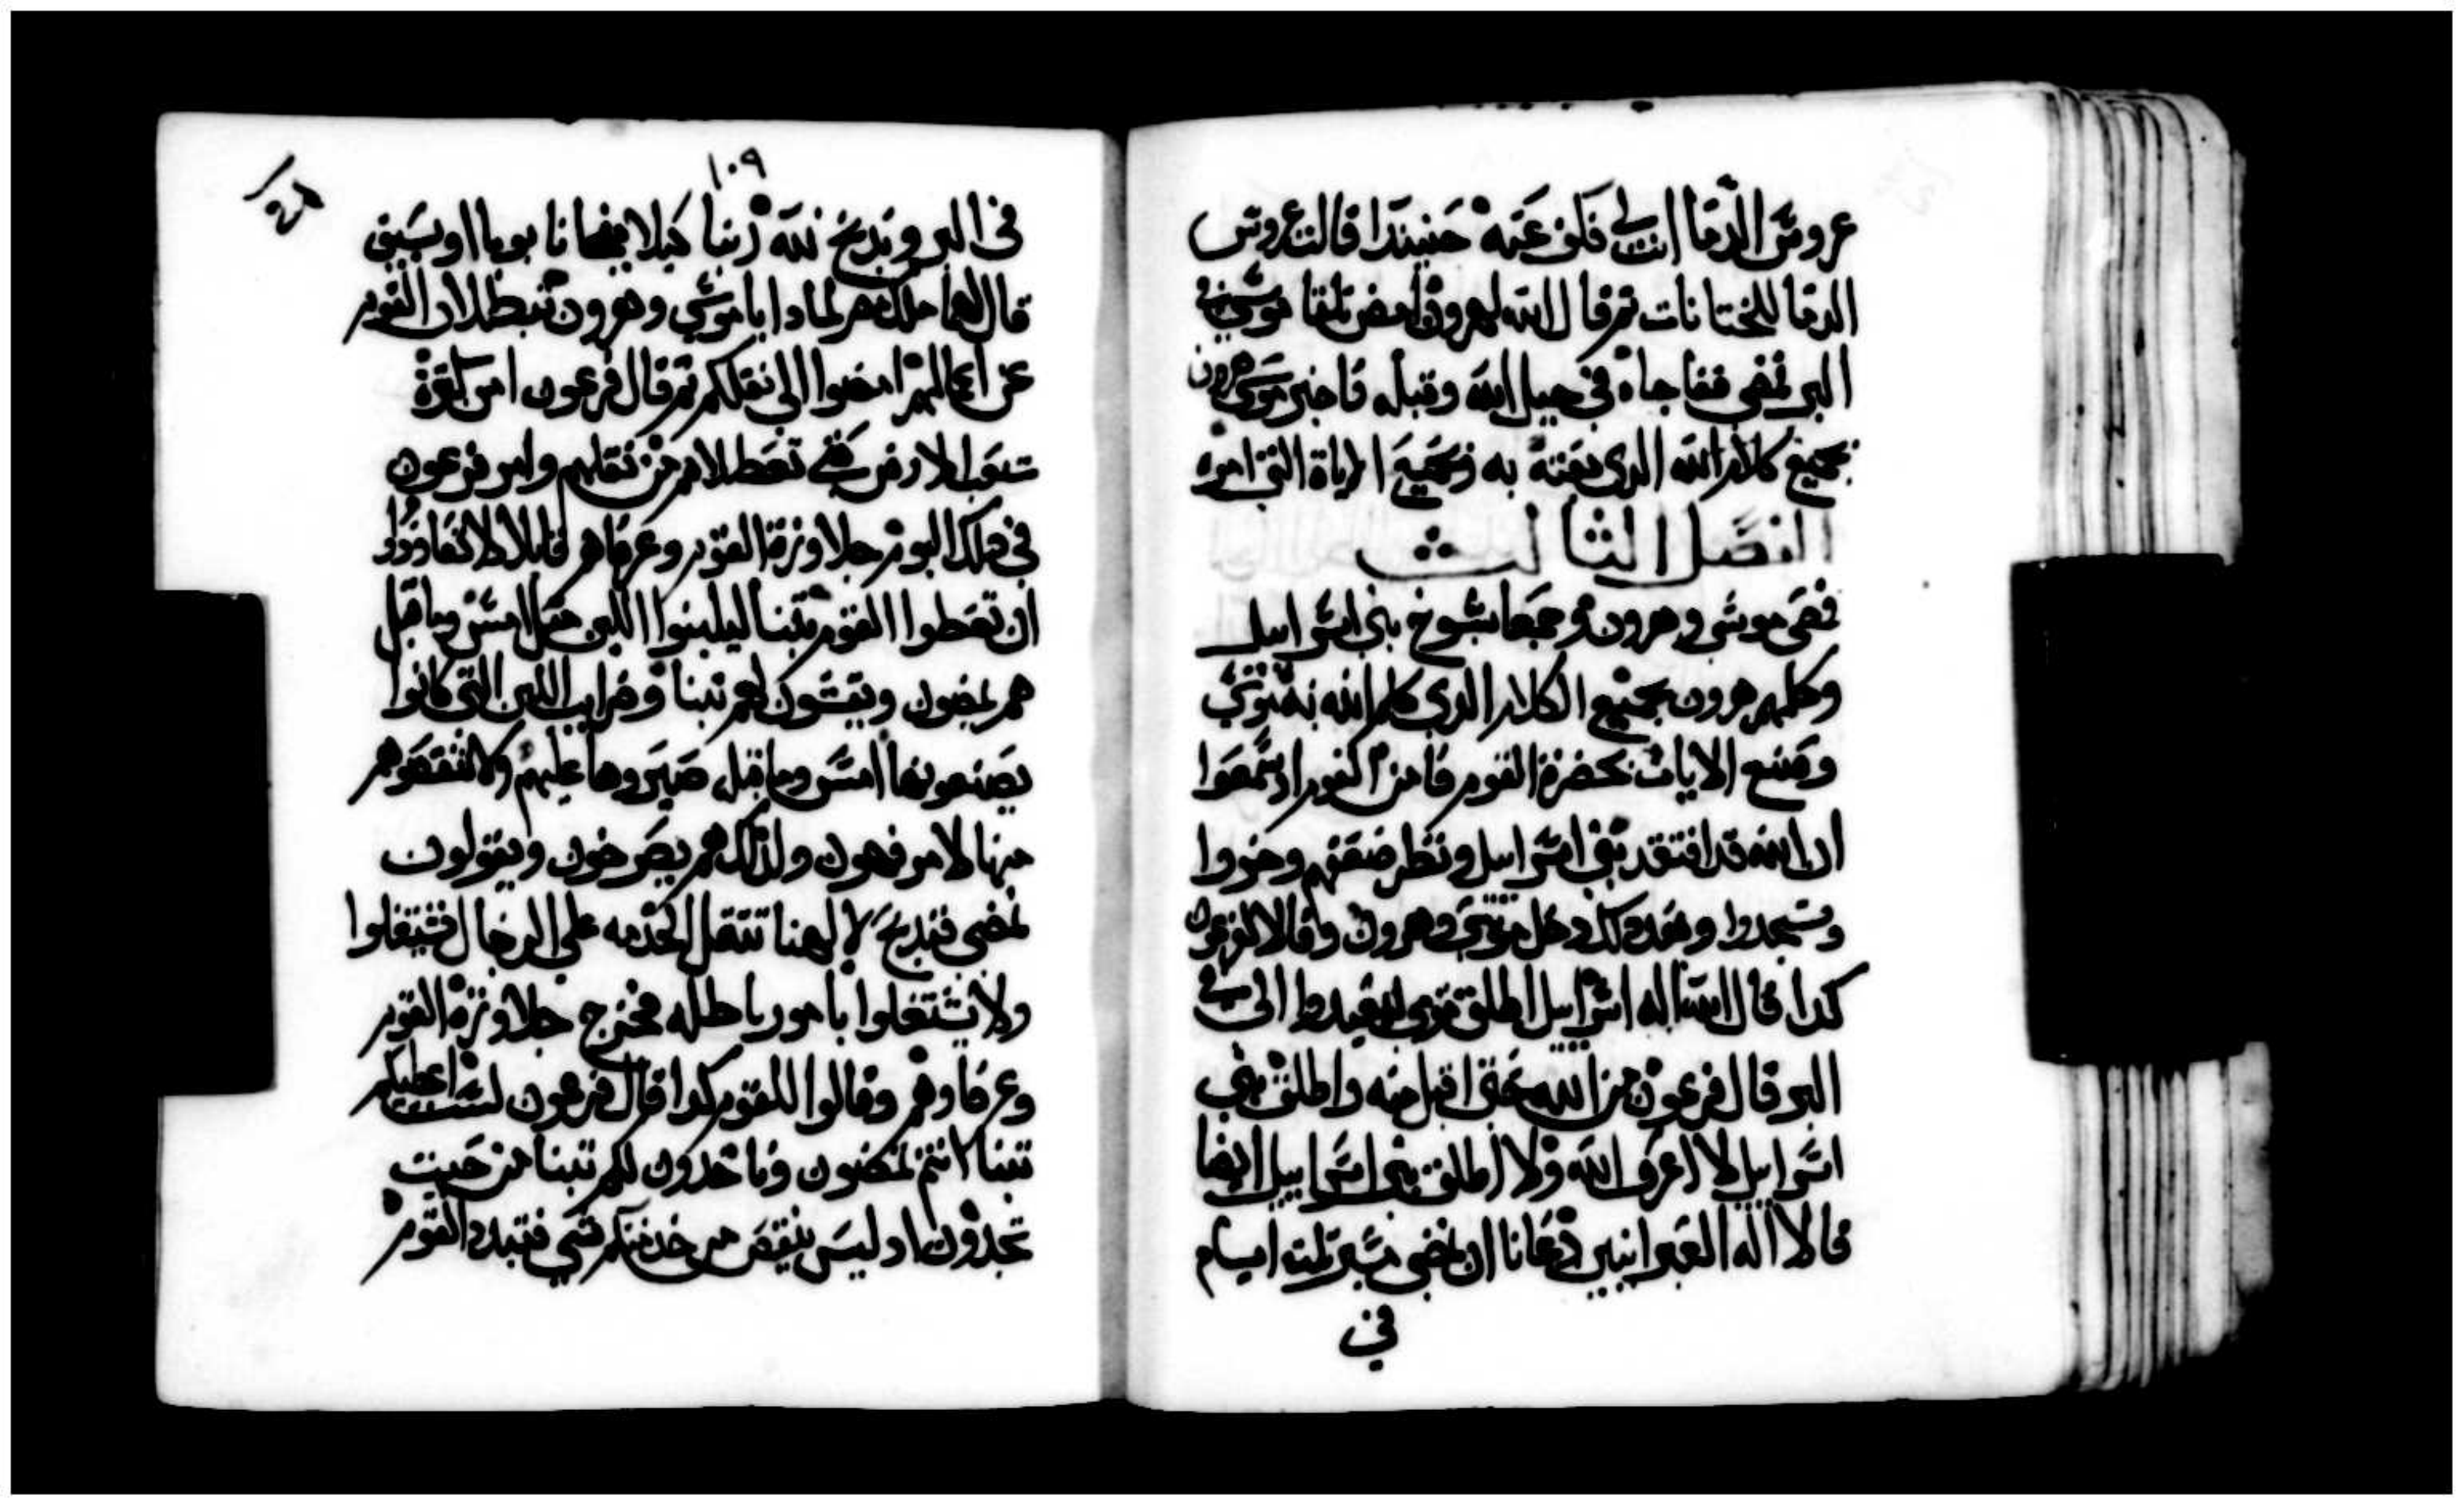 عروس الدما انت لي فكف عنه حينيدا قالت عروس
الدما للختانات تم قال الله لهرون امض تلقا موسي في
البر فمضي ففاجاه في جبل الله وقبله فاخبر موسي هرون
بجميع كلام الله الدي بعته به وبجميع الاياة التي امره
الفصل الثالث
فمضي موسي وهرون وجمعا شيوخ بني اسراييل
وكلمهم هرون بجميع الكلام الدي كلم الله به موسي
وصنع الايات بحضرة القوم فامن القوم اد سمعوا
ان الله قد افتقد بني اسراييل ونظر ضعفهم وخروا
وسجدوا وبعد دلك دخل موسي وهرون وقالا لفرعون
كدا قال الله اله اسراييل اطلق قومي ليعيدوا الي في
البر قال فرعون من الله حتي اقبل منه واطلق بني
اسراييل لا اعرف الله ولا اطلق بني اسراييل ايضا
قالا اله العبرانيين دعانا ان نمضي مسير تلتة ايام
في
١٠٩
في البر وندبح لله ربنا كيلا يفجانا بوبا او بسيف
قال لهما ملك مصر لمادا يا موسي وهرون تبطلان القوم
عن اعمالهم امضوا الي تقلكم تم قال فرعون امن كترة
شعب الارض تعطلانهم من تقلهم وامر فرعون
في دلك اليوم جلاوزة القوم وعرفاهم قايلا لا تعاودوا
ان تعطوا القوم تبنا ليلبنوا اللبن متل امس وما قبل
هم يمضون ويقشون لهم تبنا وضرايب اللبن التي كانوا
يصنعونها امس وما قبل صيروها عليهم ولا تنقصوهم
منها لانهم فهون ولدلك هم يصرخون ويقولون
نمضي فندبح لالهنا تتقل الخدمه علي الرجال فيشتغلوا
ولا يشتغلوا بامور باطله فخرج جلاوزة القوم
وعرفاوهم وقالوا للقوم كدا قال فرعون لست اعطيكم
تبنا انتم تمضون وتاخدون لكم تبنا من حيت
تجدون اد ليس ينقص من خدمتكم شي فتبدد القوم